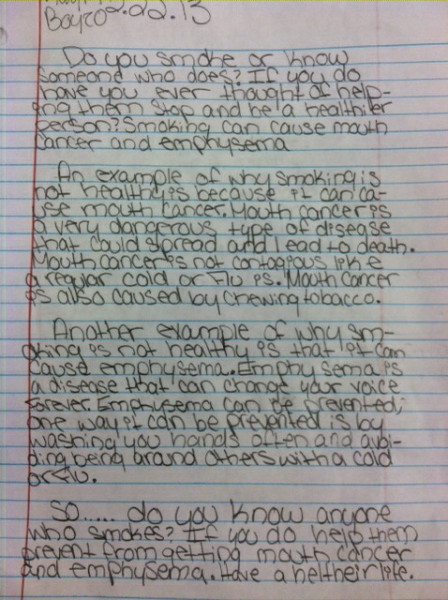 Bayco 2.22.13
Do you smoke or know
someone who does? If you do
have you ever thought of help-
ing them stop and be a healthier
person? Smoking can cause mouth
cancer and emphysema
An example of why smoking is
not healthy is because it can ca-
use mouth cancer. Mouth cancer is
a very dangerous type of disease
that could spread and lead to death.
Mouth cancer is not contagious like
a regular cold or flu is. Mouth cancer
is also caused by chewing tobacco.
Another example of why sm-
oking is not healthy is that it can
cause emphysema. Emphysema is
a disease that can change your voice
forever. Emphysema can be prevented;
one way it can be prevented is by
washing you hands often and avoi-
ding being around others with a cold
or flu.
So..... do you know anyone
who smokes? If you do help them
prevent from getting mouth cancer
and emphysema. Have a heltheir life.